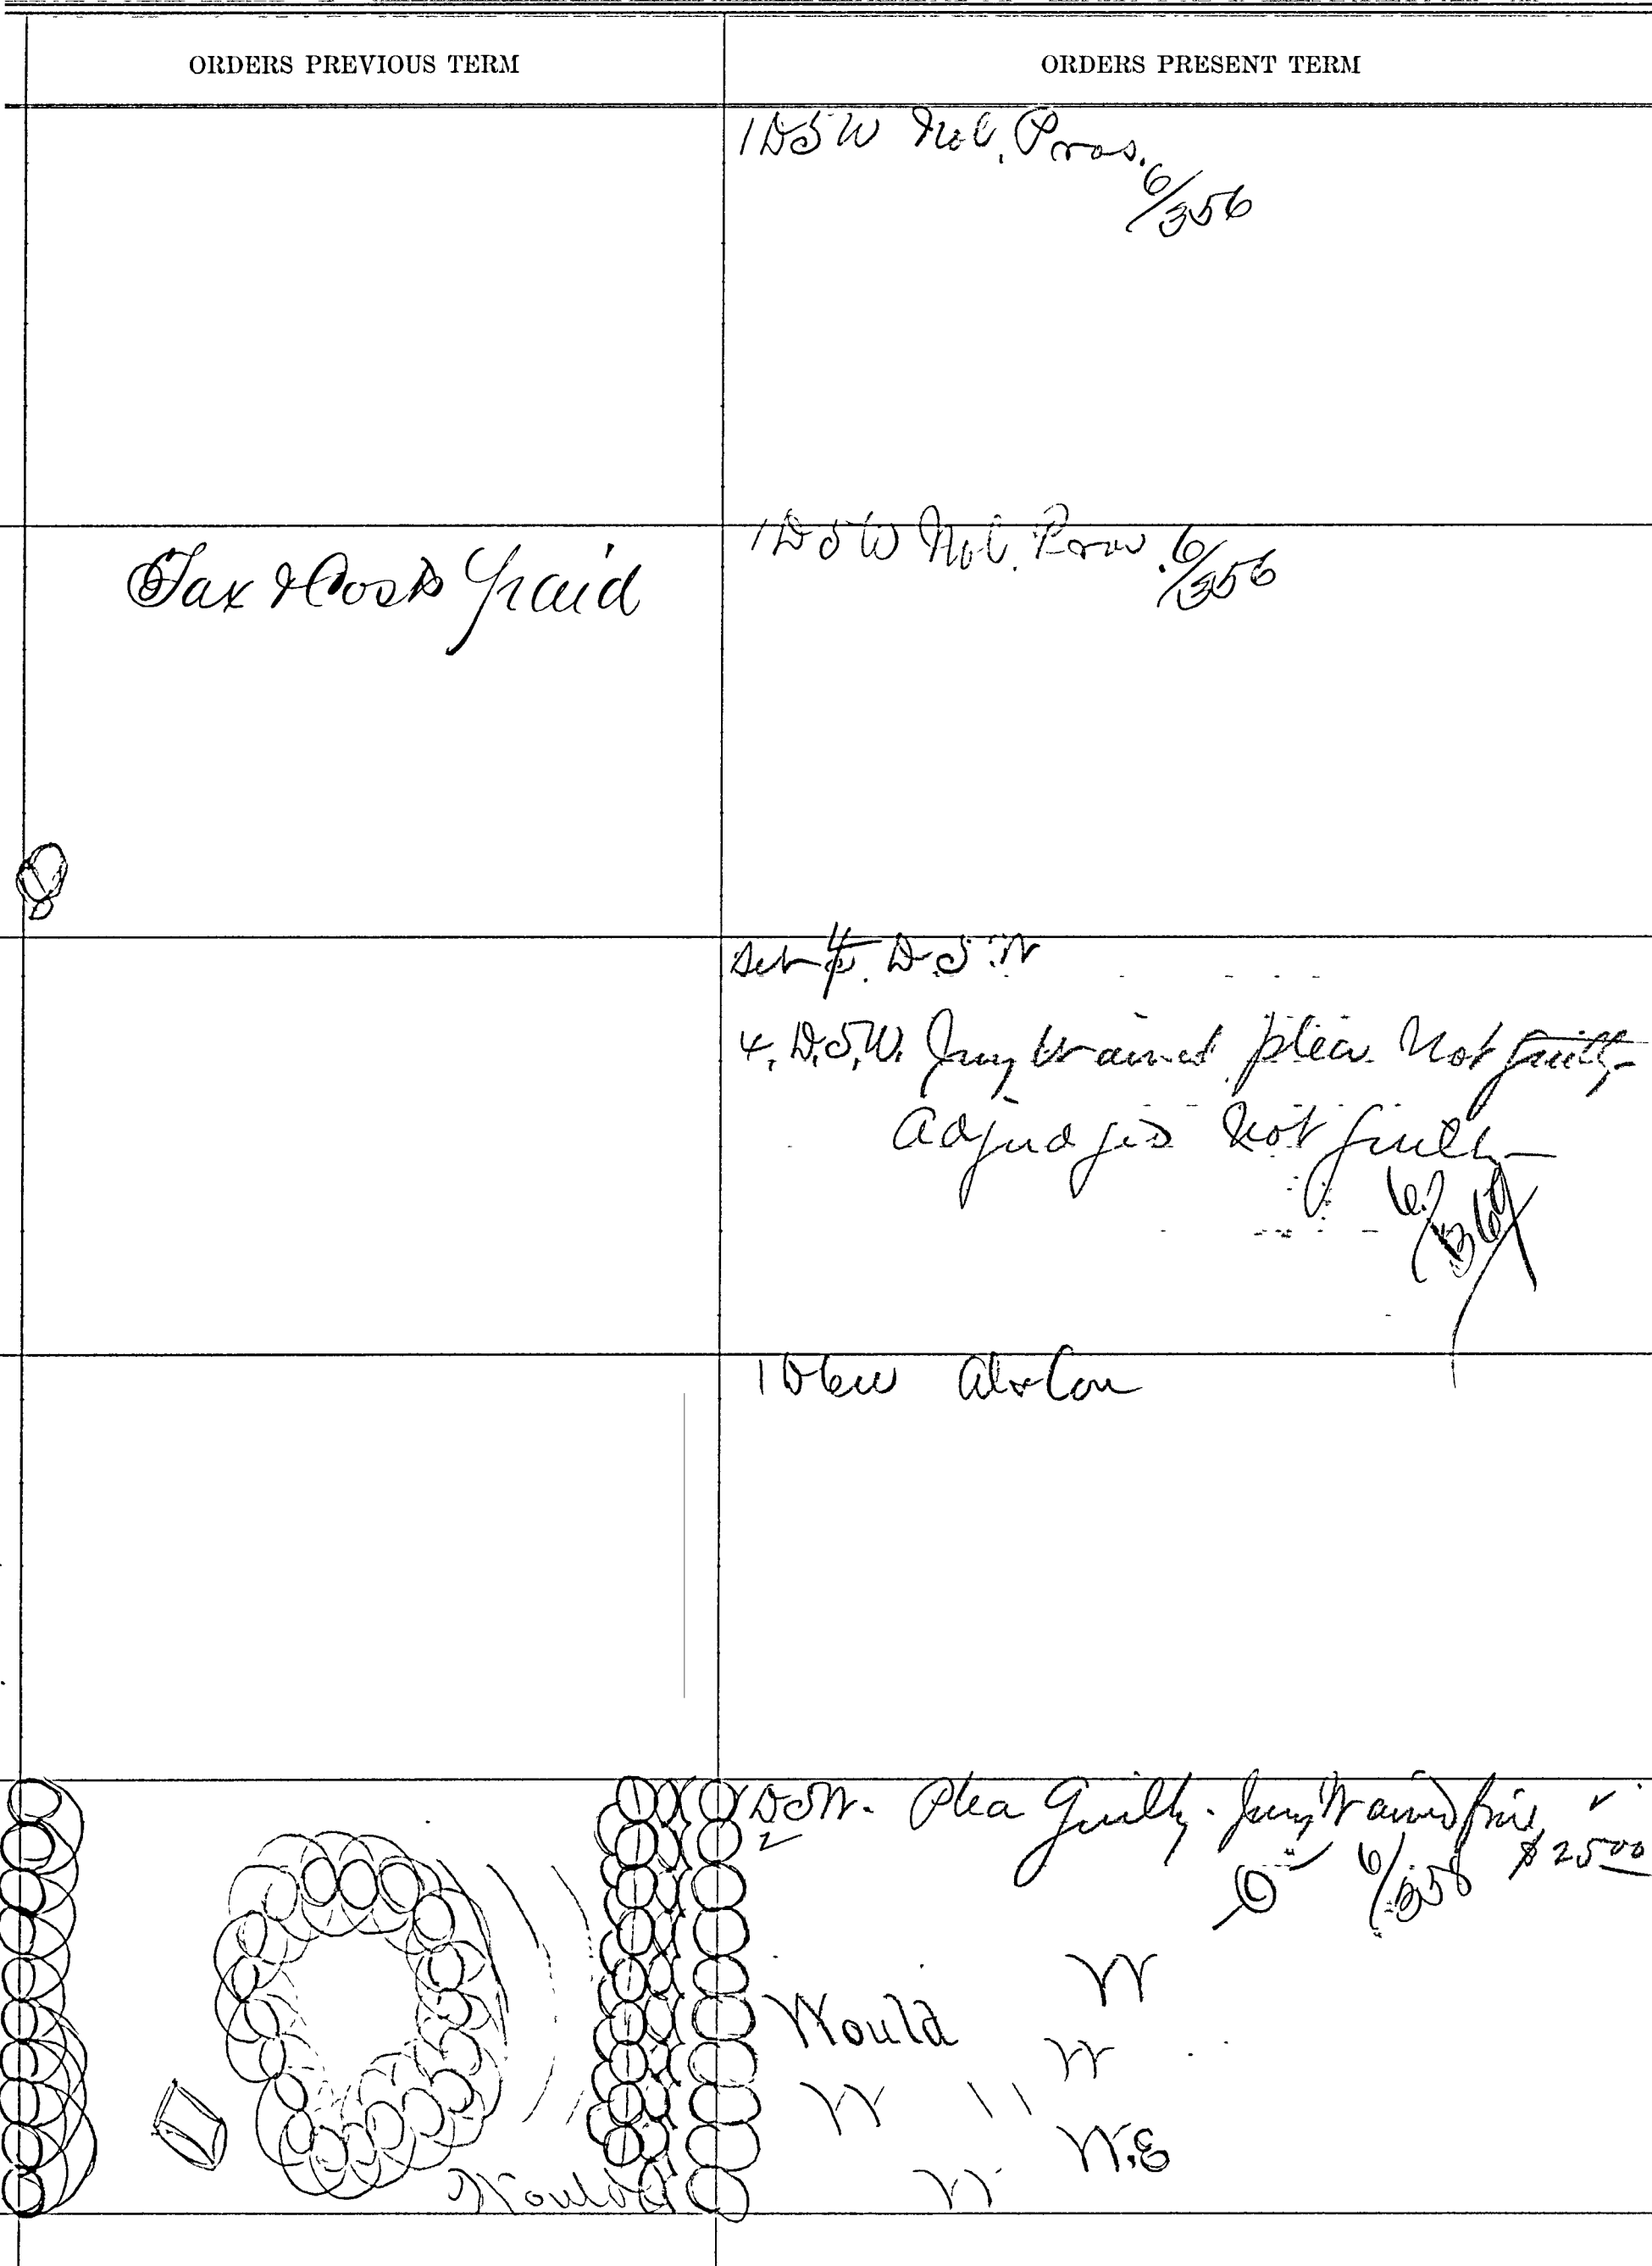 ORDERS PREVIOUS TERM
ORDERS PRESENT TERM
1 D 5 W Nol. Pros.
6/356
Tax & Costs paid
1 D 5 W Nol. Pros. 6/356
Set 4 D. 5 W
4, D, 5, W. Jury Waived plea Not Guilty
Adjudged Not Guilty
1 D 6 W
D 5 W. Plea Guilty. Jury Waived fine
2
6/358 $25 00
W
Would
W
W
W. E
W
Would